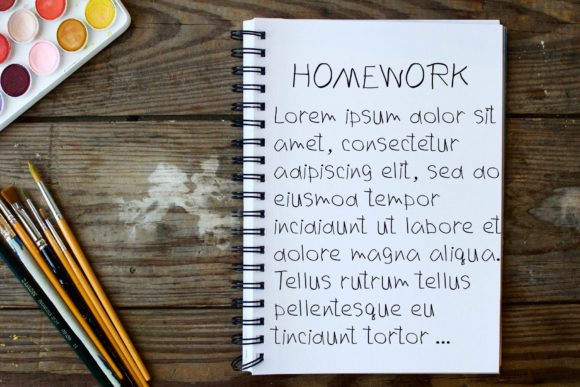 HOMEWORK
Lorem ipsum dolor sit
amet, consectetur
adipiscing elit, sed do
eiusmod tempor
incididunt ut labore et
dolore magna aliqua.
Tellus rutrum tellus
pellentesque eu
tincidunt tortor ...